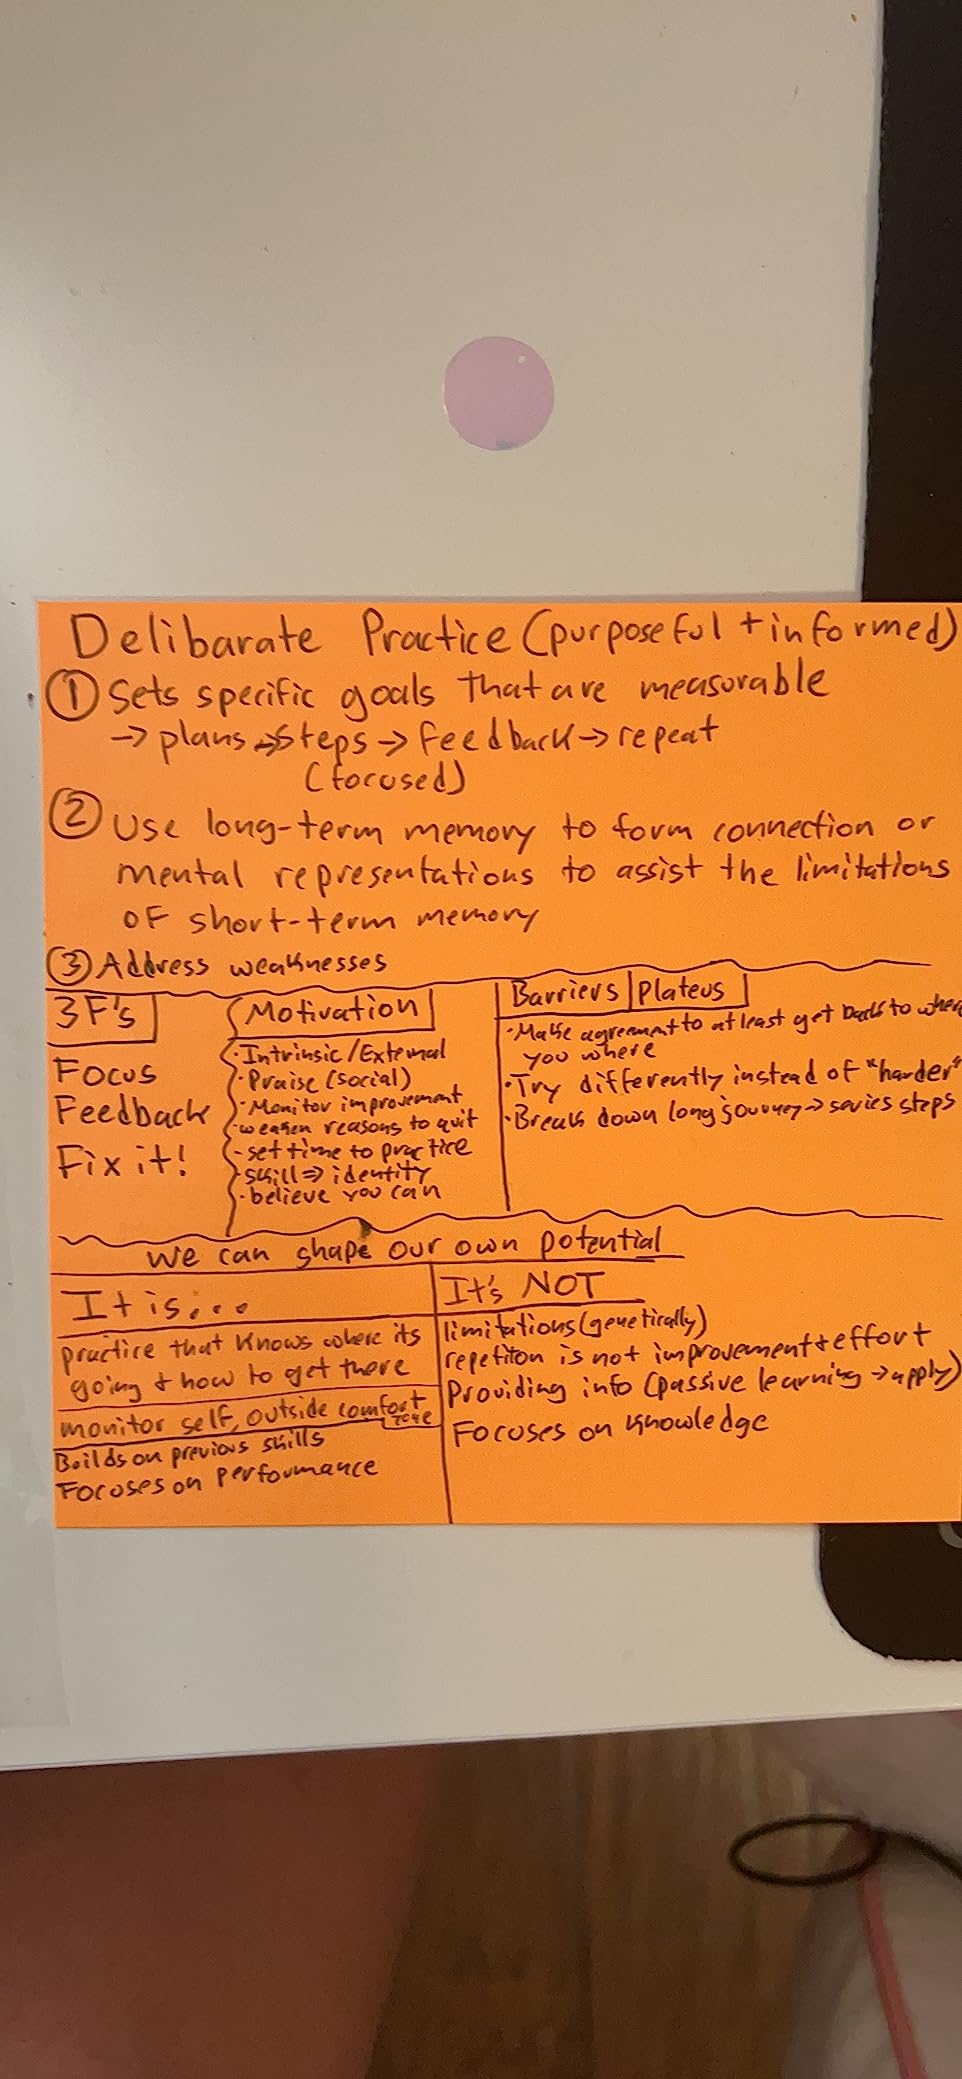 Delibarate Practice (purposeful + informed)
① Sets specific goals that are measurable
→ plans → steps → feedback → repeat
(focused)
② Use long-term memory to form connection or
mental representations to assist the limitations
of short-term memory
③ Address weaknesses
3F's
Focus
Feedback
Fix it!
Motivation
· Intrinsic/External
· Praise (social)
· Monitor improvement
· weaken reasons to quit
- set time to practice
· skill ⇒ identity
· believe you can
Barriers | Plateus
· Make agreement to at least get back to where
you where
· Try differently instead of "harder"
· Break down long journey → series steps
We can shape our own potential
It is...
practice that knows where its
going + how to get there
monitor self, outside comfort
zone
Builds on previous skills
Focuses on performance
It's NOT
limitations (genetically)
repetiton is not improvement + effort
Providing info (passive learning → apply)
Focuses on knowledge